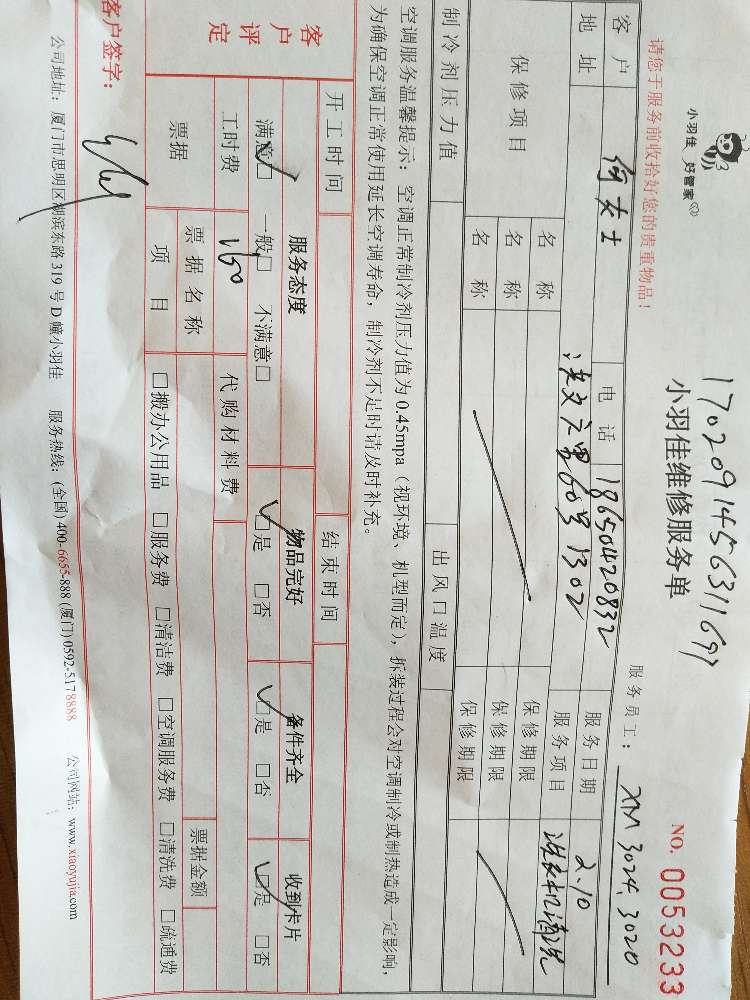 小羽佳 好管家
1702091456311697
小羽佳维修服务单
NO. 0053233
请您于服务前收拾好您的贵重物品!
服务员工: XM 3024, 3020
客户 何女士 电话 18650420832 服务日期 2.10
地址 60号1302 服务项目 洗衣机清洗
保修项目 名称 保修期限
名称 保修期限
名称 保修期限
制冷剂压力值 出风口温度
空调服务温馨提示: 空调正常制冷剂压力值为 0.45mpa (视环境、机型而定), 拆装过程会对空调制冷或制热造成一定影响,
为确保空调正常使用延长空调寿命, 制冷剂不足时请及时补充。
开工时间 结束时间
客户评定 服务态度 物品完好 备件齐全 收到卡片
满意□ 一般□ 不满意□ □是 □否 □是 □否 □是 □否
工时费 160 代购材料费
票据 票据名称 票据金额
项目 □搬办公用品 □服务费 □清洁费 □空调服务费 □清洗费 □疏通费
客户签字:
公司地址: 厦门市思明区湖滨东路 319 号 D 幢小羽佳 服务热线: (全国) 400-6655-888 (厦门) 0592-5178888 公司网站: www.xiaoyujia.com